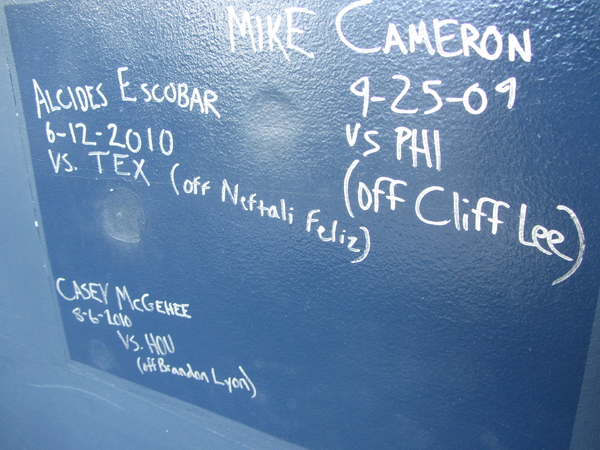 MIKE CAMERON
9-25-09
VS PHI
(off Cliff Lee)
ALCIDES ESCOBAR
6-12-2010
VS. TEX (off Neftali Feliz)
CASEY MCGEHEE
8-6-2010
VS. HOU
(off Brandon Lyon)